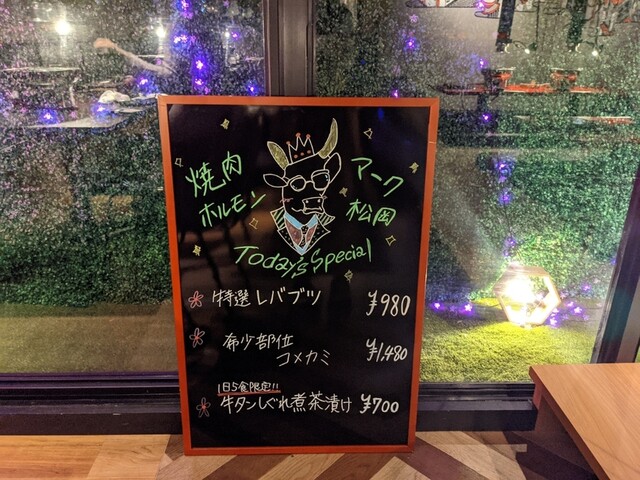 焼肉
ホルモン
アーク
松岡
Today's Special
特選レバブツ ¥980
希少部位
コメカミ ¥1,480
1日5食限定!!
牛タンしぐれ煮茶漬け ¥700